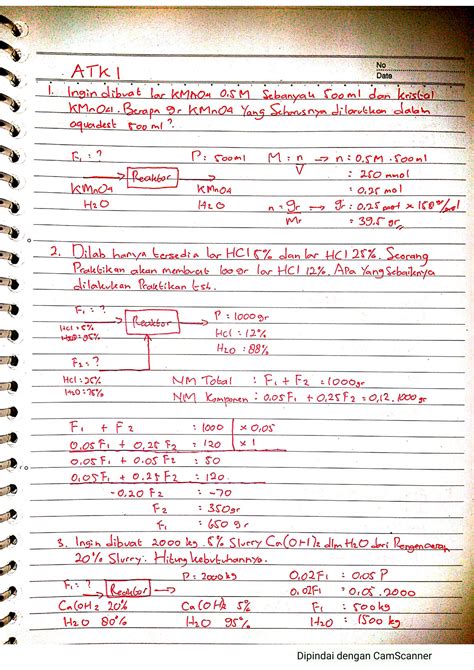 No
Date
ATK 1
1. Ingin dibuat lar KMnO4 0.5 M Sebanyak 500 ml dan kristal
KMnO4. Berapa gr KMnO4 Yang Seharusnya dilarutkan dalam
aquadest 500 ml?
F1 = ? P : 500 ml M = n → n : 0.5 M . 500 ml
Reaktor V : 250 mmol
KMnO4 KMnO4 : 0,25 mol
H2O H2O n = gr → gr : 0,25 mol x 158 gr/mol
Mr = 39.5 gr
2. Dilab hanya tersedia lar HCl 5% dan lar HCl 25%. Seorang
Praktikan akan membuat 1000 gr lar HCl 12%. Apa Yang Sebaiknya
dilakukan Praktikan tsb.
F1 : ? Reaktor P : 1000 gr
HCl = 5% HCl : 12%
H2O = 95% H2O : 88%
F2 = ?
HCl : 25% NM Total : F1 + F2 = 1000 gr
H2O : 75% NM Komponen : 0.05 F1 + 0,25 F2 = 0,12 . 1000 gr
F1 + F2 : 1000 | x 0,05
0.05 F1 + 0,25 F2 : 120 | x 1
0.05 F1 + 0.05 F2 : 50
0,05 F1 + 0.25 F2 : 120
-0,20 F2 : -70
F2 : 350 gr
F1 : 650 gr
3. Ingin dibuat 2000 kg 5% Slurry Ca(OH)2 dlm H2O dari Pengenceran
20% Slurry. Hitung kebutuhannya.
F1 = ? Reaktor P : 2000 kg 0,02 F1 : 0.05 P
0,02 F1 : 0,05 . 2000
Ca(OH)2 20% Ca(OH)2 5% F1 : 500 kg
H2O 80% H2O 95% H2O : 1500 kg
Dipindai dengan CamScanner